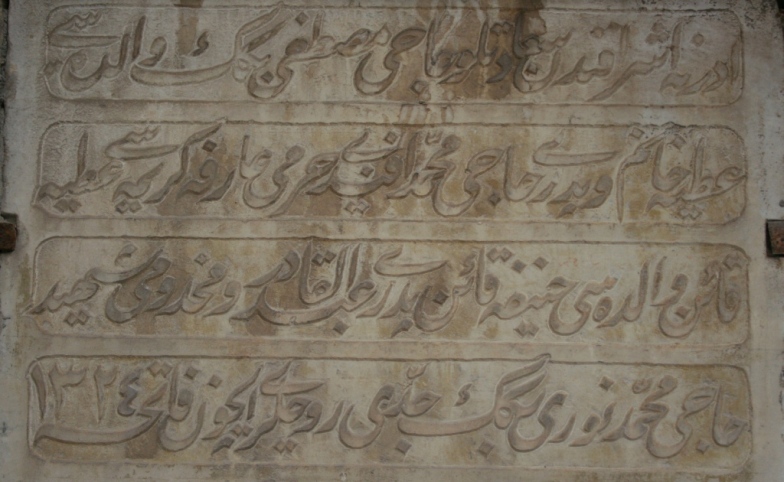 ادرنه اشرافندن سعادتلو حاجی مصطفی بگك والده سی
عطیه خانم و پدری حاجی محمد افندی حرمی عارفه کریمه سی عطیه
قائن والده سی حنیفه قائن پدری عبدالقادر و مخدومی شهید
حاجی محمد نوری بگك جدی روحلری ایچون فاتحه ١٣٢٤